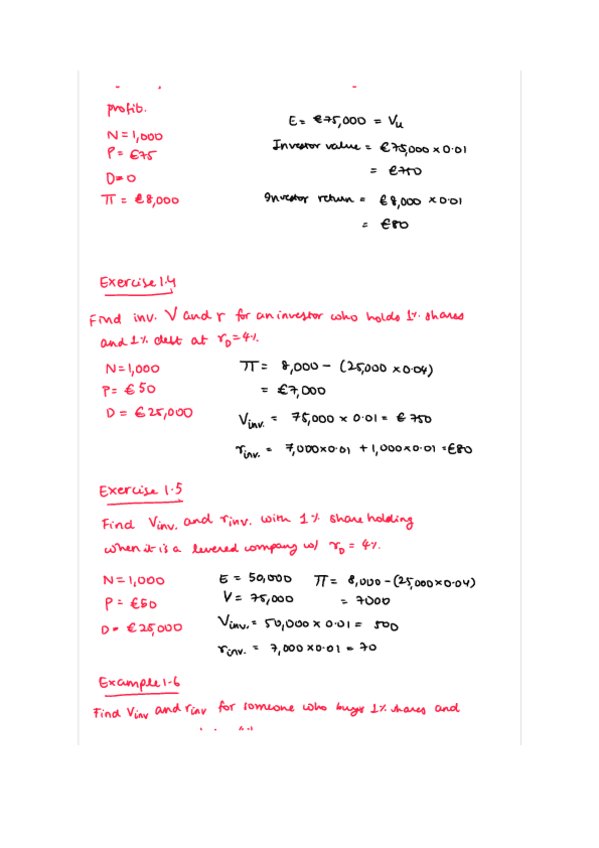 profit.
N=1,000
P= €75
D=0
π = €8,000
E= €75,000 = Vu
Investor value = €75,000 × 0.01
= €750
Investor return = €8,000 × 0.01
= €80
Exercise 1.4
Find inv. V and r for an investor who holds 1% shares
and 1% debt at rD=4%.
N=1,000
P= €50
D = €25,000
π = 8,000 - (25,000 × 0.04)
= €7,000
Vinv. = 75,000 × 0.01 = €750
rinv. = 7,000×0.01 + 1,000×0.01 = €80
Exercise 1.5
Find Vinv. and rinv. with 1% shareholding
when it is a levered company w/ rD = 4%.
N=1,000
P= €50
D= €25,000
E = 50,000
V = 75,000
π = 8,000-(25,000×0.04)
= 7000
Vinv. = 50,000 × 0.01 = 500
rinv. = 7,000 ×0.01 = 70
Example 1.6
Find Vinv and rinv for someone who buys 1% shares and